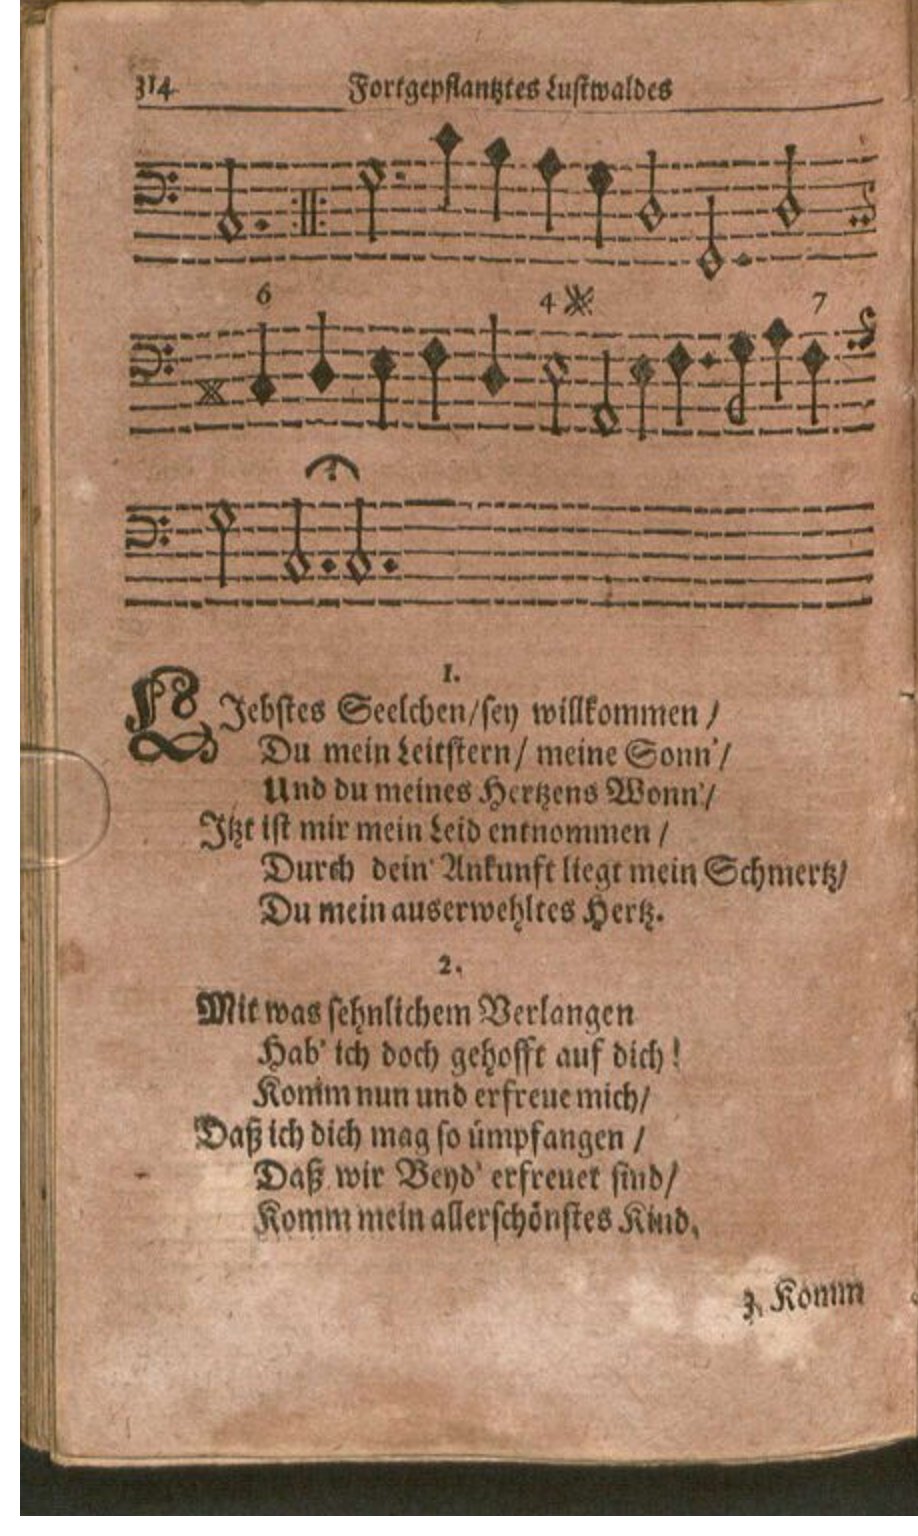 314 Fortgepflantztes Lustwaldes
6 4 7
1.
LJebstes Seelchen/sey willkommen /
Du mein Leitstern/ meine Sonn'/
Und du meines Hertzens Wonn'/
Jtzt ist mir mein Leid entnommen /
Durch dein' Ankunft liegt mein Schmertz/
Du mein auserwehltes Hertz.
2.
Mit was sehnlichem Verlangen
Hab' ich doch gehofft auf dich!
Komm nun und erfreue mich/
Daß ich dich mag so ümpfangen /
Daß wir Beyd' erfreuet sind/
Komm mein allerschönstes Kind.
3. Komm